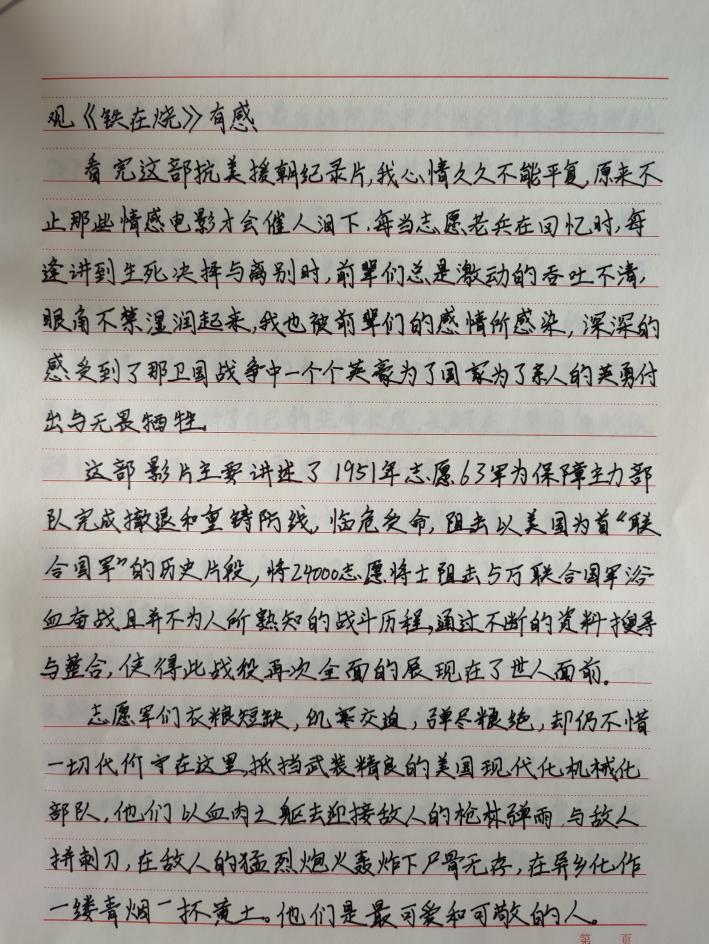 观《铁在烧》有感
看完这部抗美援朝纪录片,我心情久久不能平复,原来不
止那些情感电影才会催人泪下,每当志愿老兵在回忆时,每
逢讲到生死决择与离别时,前辈们总是激动的吞吐不清,
眼角不禁湿润起来,我也被前辈们的感情所感染,深深的
感受到了那卫国战争中一个个英豪为了国家为了亲人的英勇付
出与无畏牺牲。
这部影片主要讲述了1951年志愿63军为保障主力部
队完成撤退和重铸防线,临危受命,阻击以美国为首“联
合国军”的历史片段,将24000志愿将士阻击5万联合国军浴
血奋战且并不为人所熟知的战斗历程,通过不断的资料搜寻
与整合,使得此战役再次全面的展现在了世人面前。
志愿军们衣粮短缺,饥寒交迫,弹尽粮绝,却仍不惜
一切代价守在这里,抵挡武装精良的美国现代化机械化
部队,他们以血肉之躯去迎接敌人的枪林弹雨,与敌人
拼刺刀,在敌人的猛烈炮火轰炸下尸骨无存,在异乡化作
一缕青烟一抔黄土。他们是最可爱和可敬的人。
第 页